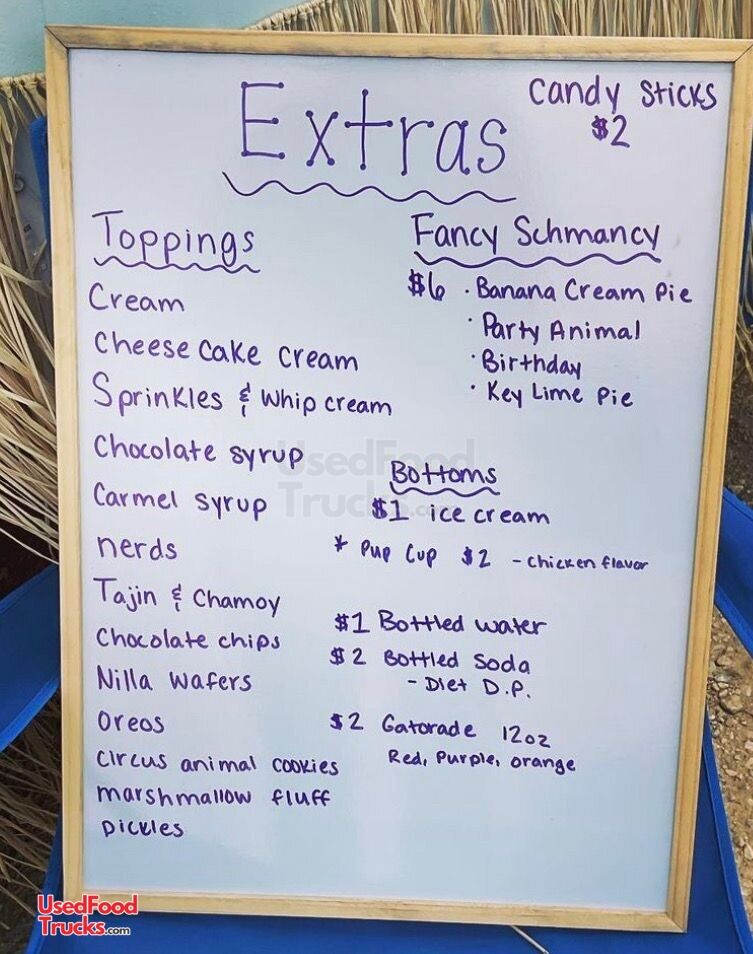 Extras
Candy Sticks
$2
Toppings
Cream
Cheese cake cream
Sprinkles & whip cream
Chocolate syrup
Carmel syrup
nerds
Tajin & Chamoy
Chocolate chips
Nilla wafers
Oreos
circus animal cookies
marshmallow fluff
pickles
Fancy Schmancy
$6 · Banana Cream Pie
· Party Animal
· Birthday
· Key Lime Pie
Bottoms
$1 ice cream
* Pup Cup $2 - Chicken flavor
$1 Bottled water
$2 Bottled Soda
- Diet D.P.
$2 Gatorade 12oz
Red, Purple, orange
UsedFood
Trucks.com
UsedFood
Trucks.com